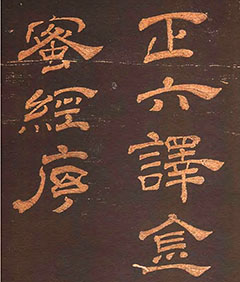 正六譯金
蜜經序